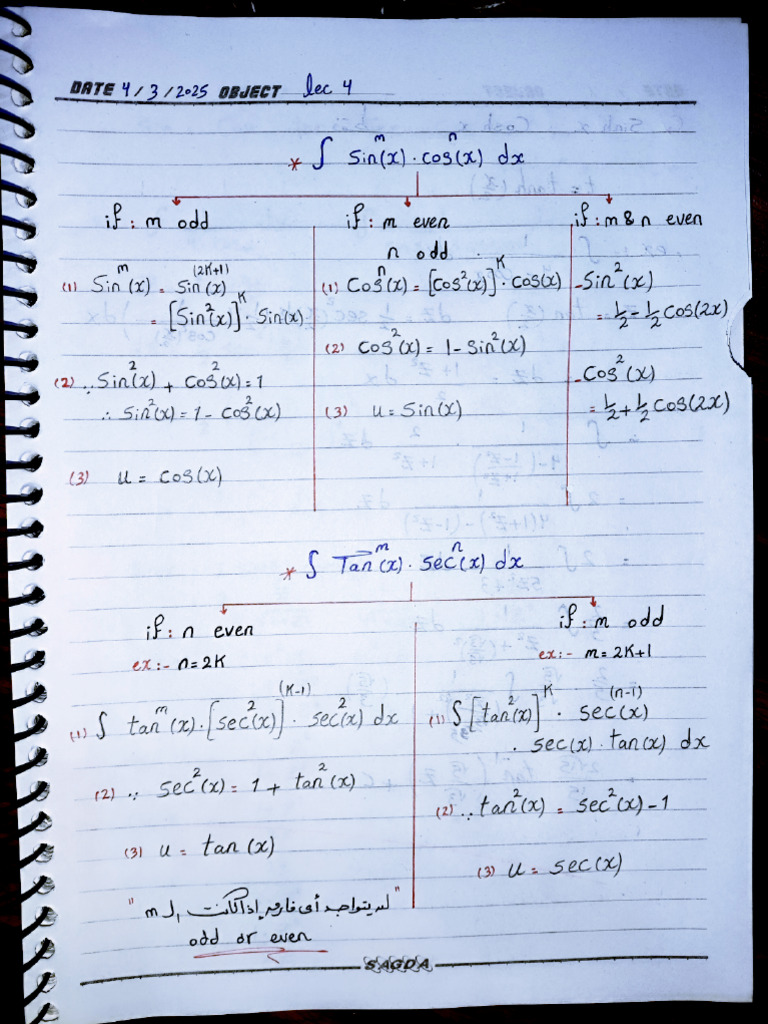 DATE 4/3/2025 OBJECT lec 4
* ∫ sin^m(x) · cos^n(x) dx
if : m odd
(1) Sin^m(x) = Sin^(2K+1)(x)
= [Sin²(x)]^K · Sin(x)
(2) ∵ Sin²(x) + Cos²(x) = 1
∴ Sin²(x) = 1 - Cos²(x)
(3) u = cos(x)
if : m even
n odd
(1) Cos^n(x) = [Cos²(x)]^K · Cos(x)
(2) Cos²(x) = 1 - Sin²(x)
(3) u = Sin(x)
if : m & n even
- Sin²(x)
= ½ - ½ Cos(2x)
- Cos²(x)
= ½ + ½ Cos(2x)
* ∫ Tan^m(x) · sec^n(x) dx
if : n even
ex :- n = 2K
(1) ∫ tan^m(x) · [sec²(x)]^(K-1) · sec²(x) dx
(2) ∵ sec²(x) = 1 + tan²(x)
(3) u = tan(x)
"لا يتواجد أي فارق إذا كانت ال m"
odd or even
if : m odd
ex :- m = 2K+1
(1) ∫ [tan²(x)]^K · sec^(n-1)(x)
· sec(x) · tan(x) dx
(2) ∵ tan²(x) = sec²(x) - 1
(3) u = sec(x)
SAGDA